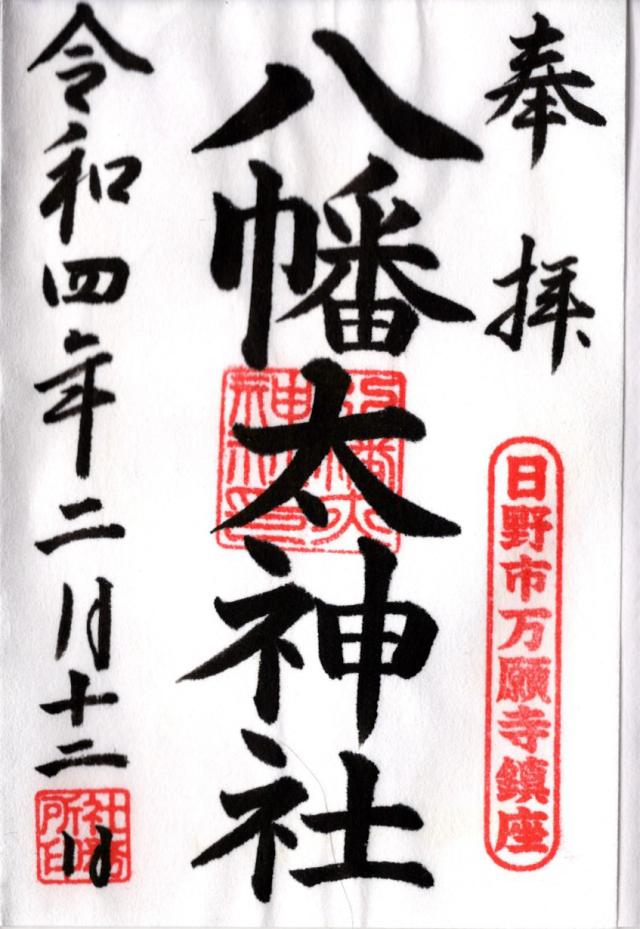 奉拝
日野市万願寺鎮座
八幡太神社
令和四年二月十二日
社務所印